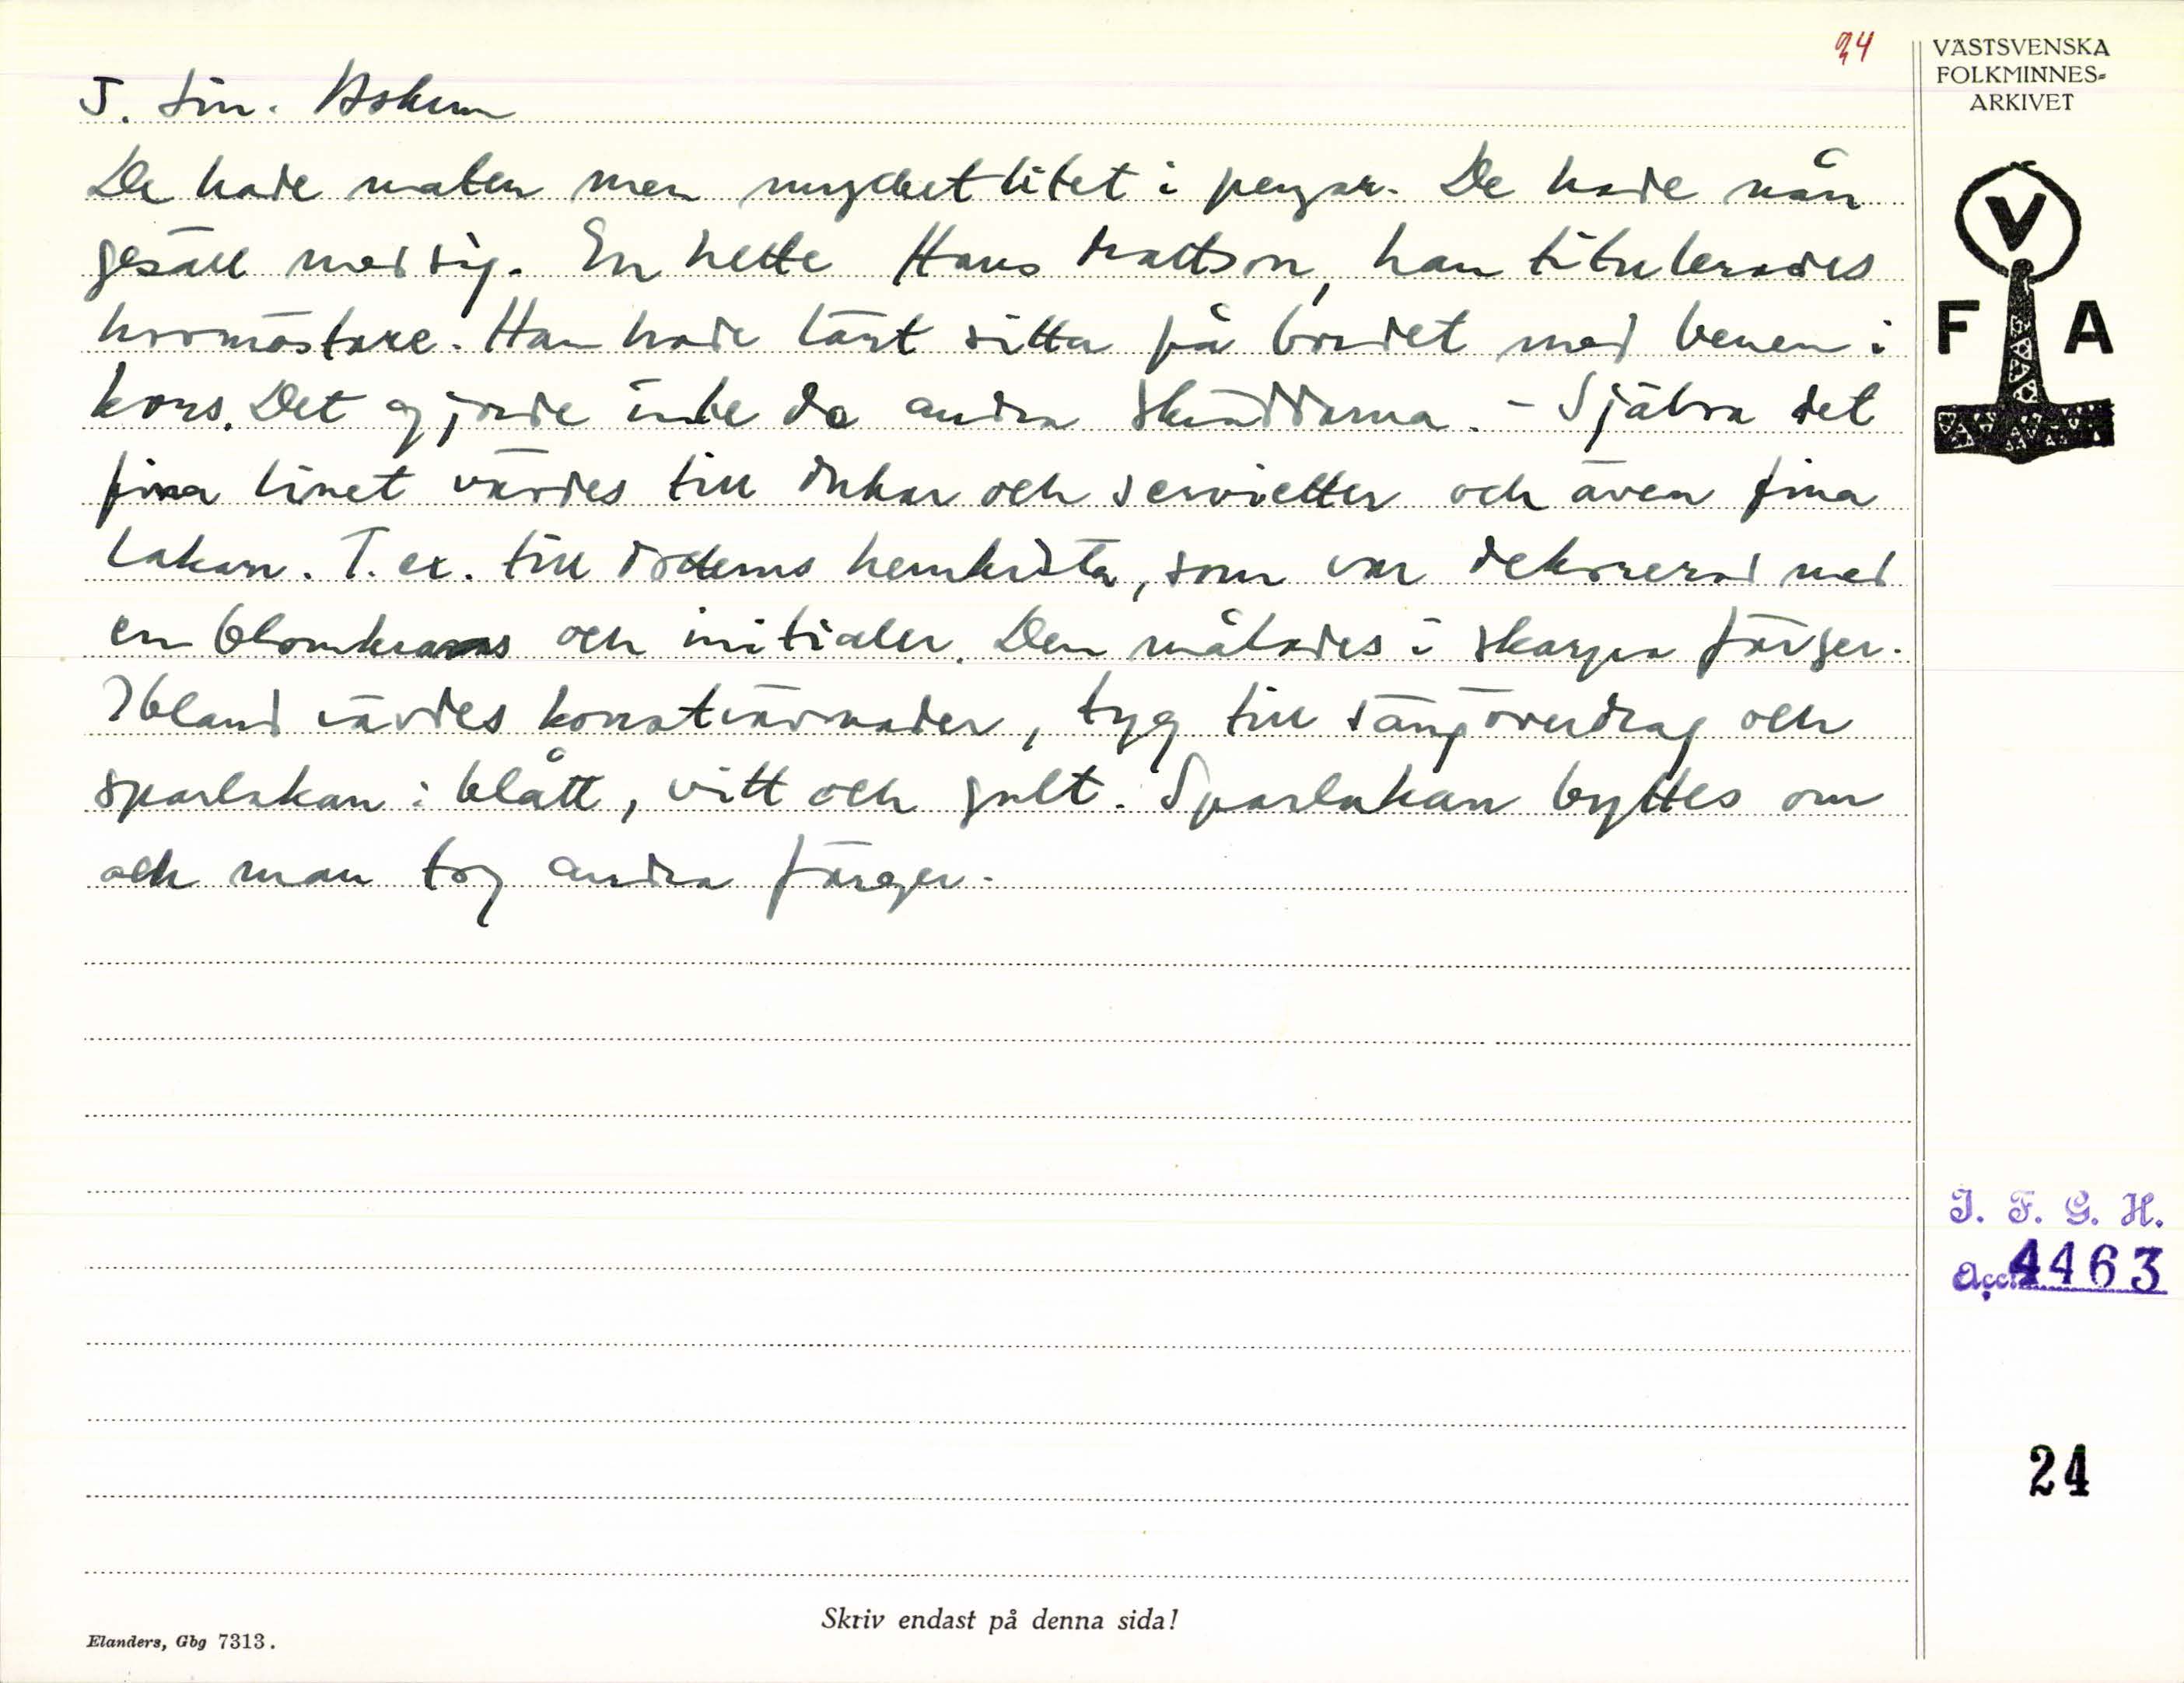 24
VÄSTSVENSKA
FOLKMINNES-
ARKIVET
J. Sm. Askum
De hade maten men mycket litet i pengar. De hade nån
gesäll med sig. En hette Hans Mattson, han titulerades
hovmästare. Han hade lärt sitta på bordet med benen i
kors. Det gjorde inte de andra skräddarna. - Själva det
fina linet vävdes till dukar och servietter och även fina
lakan. T. ex. till dotterns hemkista, som var dekorerad med
en blomkrans och initialer. Den målades i skarpa färger.
Ibland vävdes konstvävnader, tyg till sängöverdrag och
sparlakan i blått, vitt och gult. Sparlakan byttes om
och man tog andra färger.
V
F A
I. F. G. H.
Acc. 4463
24
Skriv endast på denna sida!
Elanders, Gbg 7313.